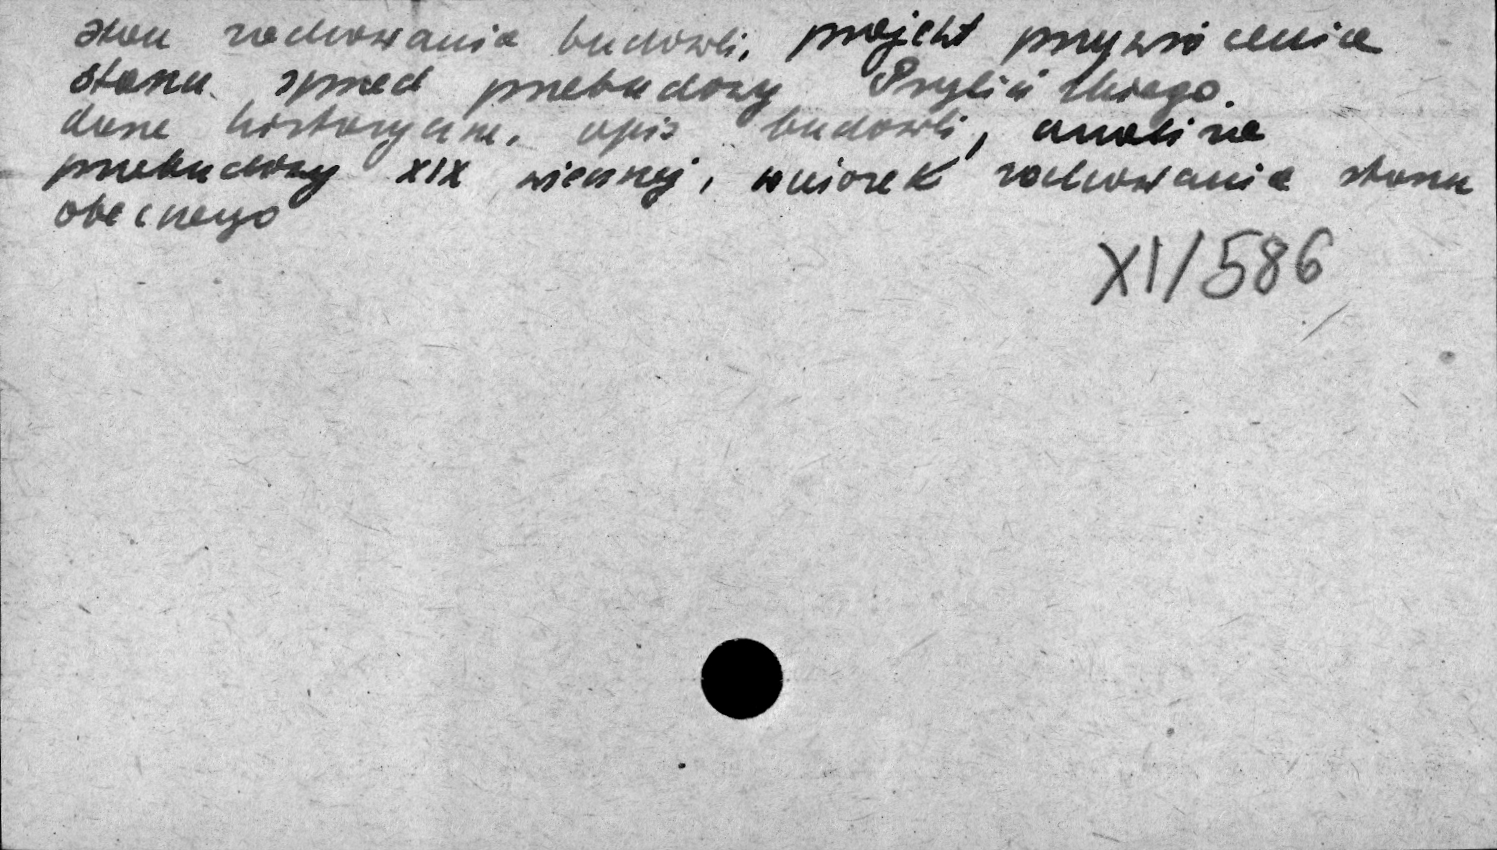 stan zachowania budowli, projekt przywrócenia
stanu sprzed przebudowy Prylińskiego.
dane historyczne, opis budowli, analiza
przebudowy XIX wiecznej, wniosek zachowania stanu
obecnego
XI/586